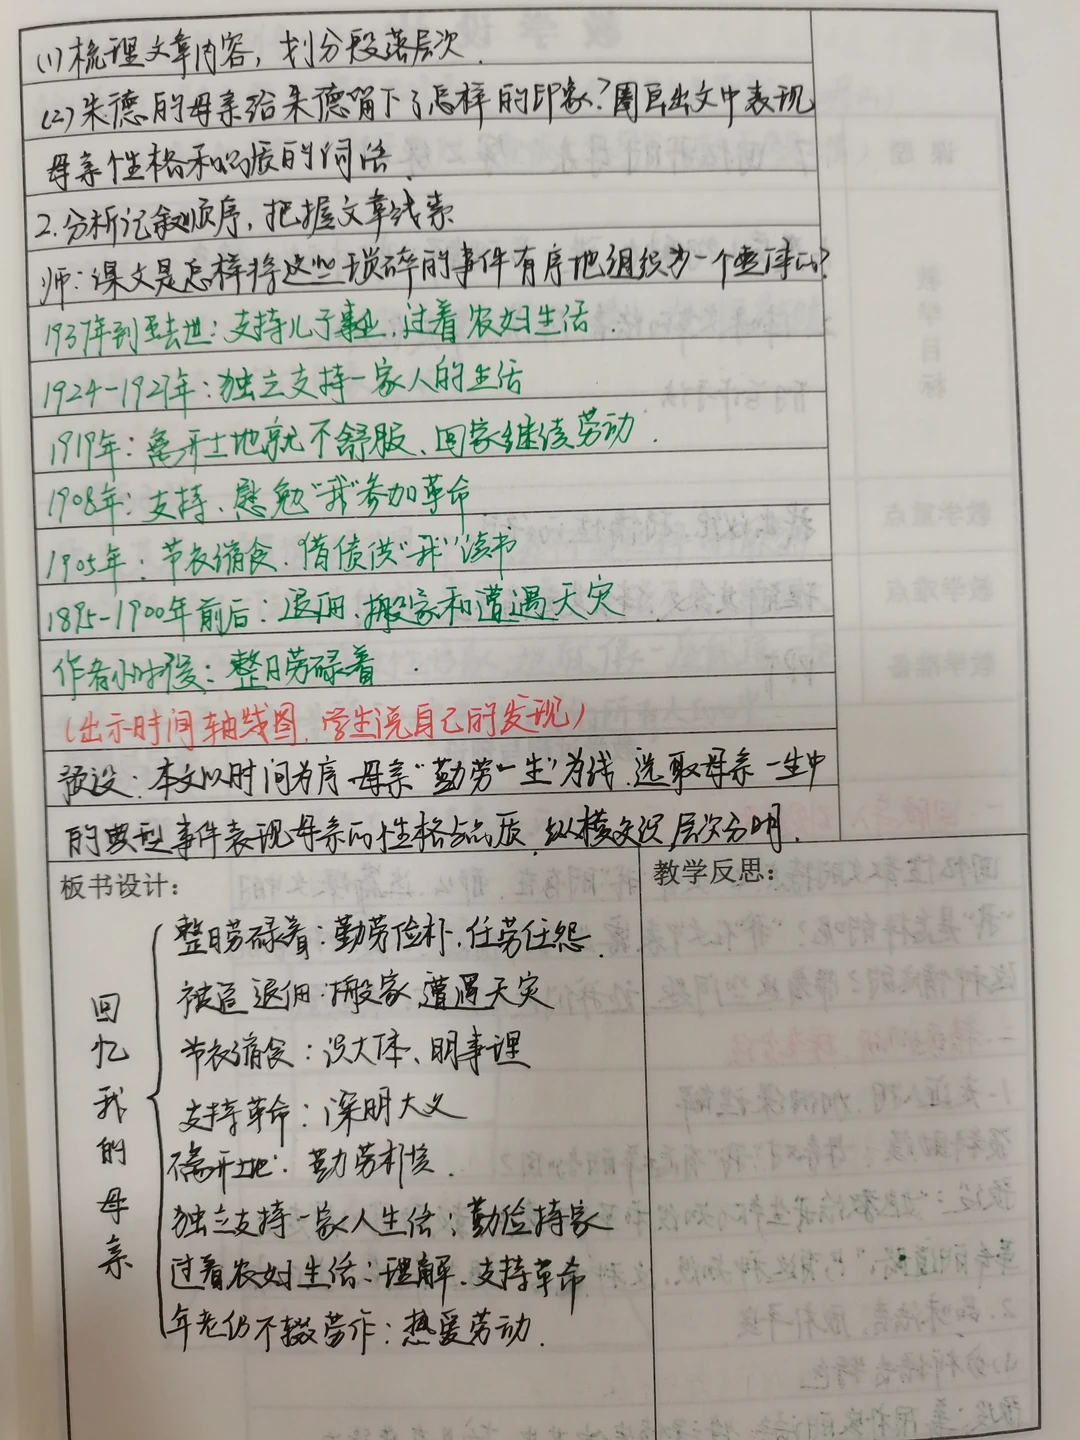 (1)梳理文章内容，划分段落层次.
(2)朱德的母亲给朱德留下了怎样的印象？圈画出文中表现
母亲性格和品质的词语.
2.分析记叙顺序，把握文章线索
师：课文是怎样将这些琐碎的事件有序地组织为一个整体的？
1937年到去世：支持儿子事业，过着农妇生活.
1924-1927年：独立支持一家人的生活
1919年：离开土地就不舒服、回家继续劳动.
1908年：支持、慰勉“我”参加革命
1905年：节衣缩食、借债供“我”读书
1895-1900年前后：退佃、搬家和遭遇天灾
作者小时候：整日劳碌着.
(出示时间轴线图，学生说自己的发现)
预设：本文以时间为序，母亲“勤劳一生”为线，选取母亲一生中
的典型事件表现母亲的性格与品质，纵横交织，层次分明.
板书设计：
教学反思：
回忆我的母亲
整日劳碌着：勤劳俭朴、任劳任怨.
被迫退佃、搬家、遭遇天灾
节衣缩食：识大体、明事理
支持革命：深明大义
离开土地：勤劳朴实.
独立支持一家人生活：勤俭持家
过着农妇生活：理解、支持革命
年老仍不辍劳作：热爱劳动.